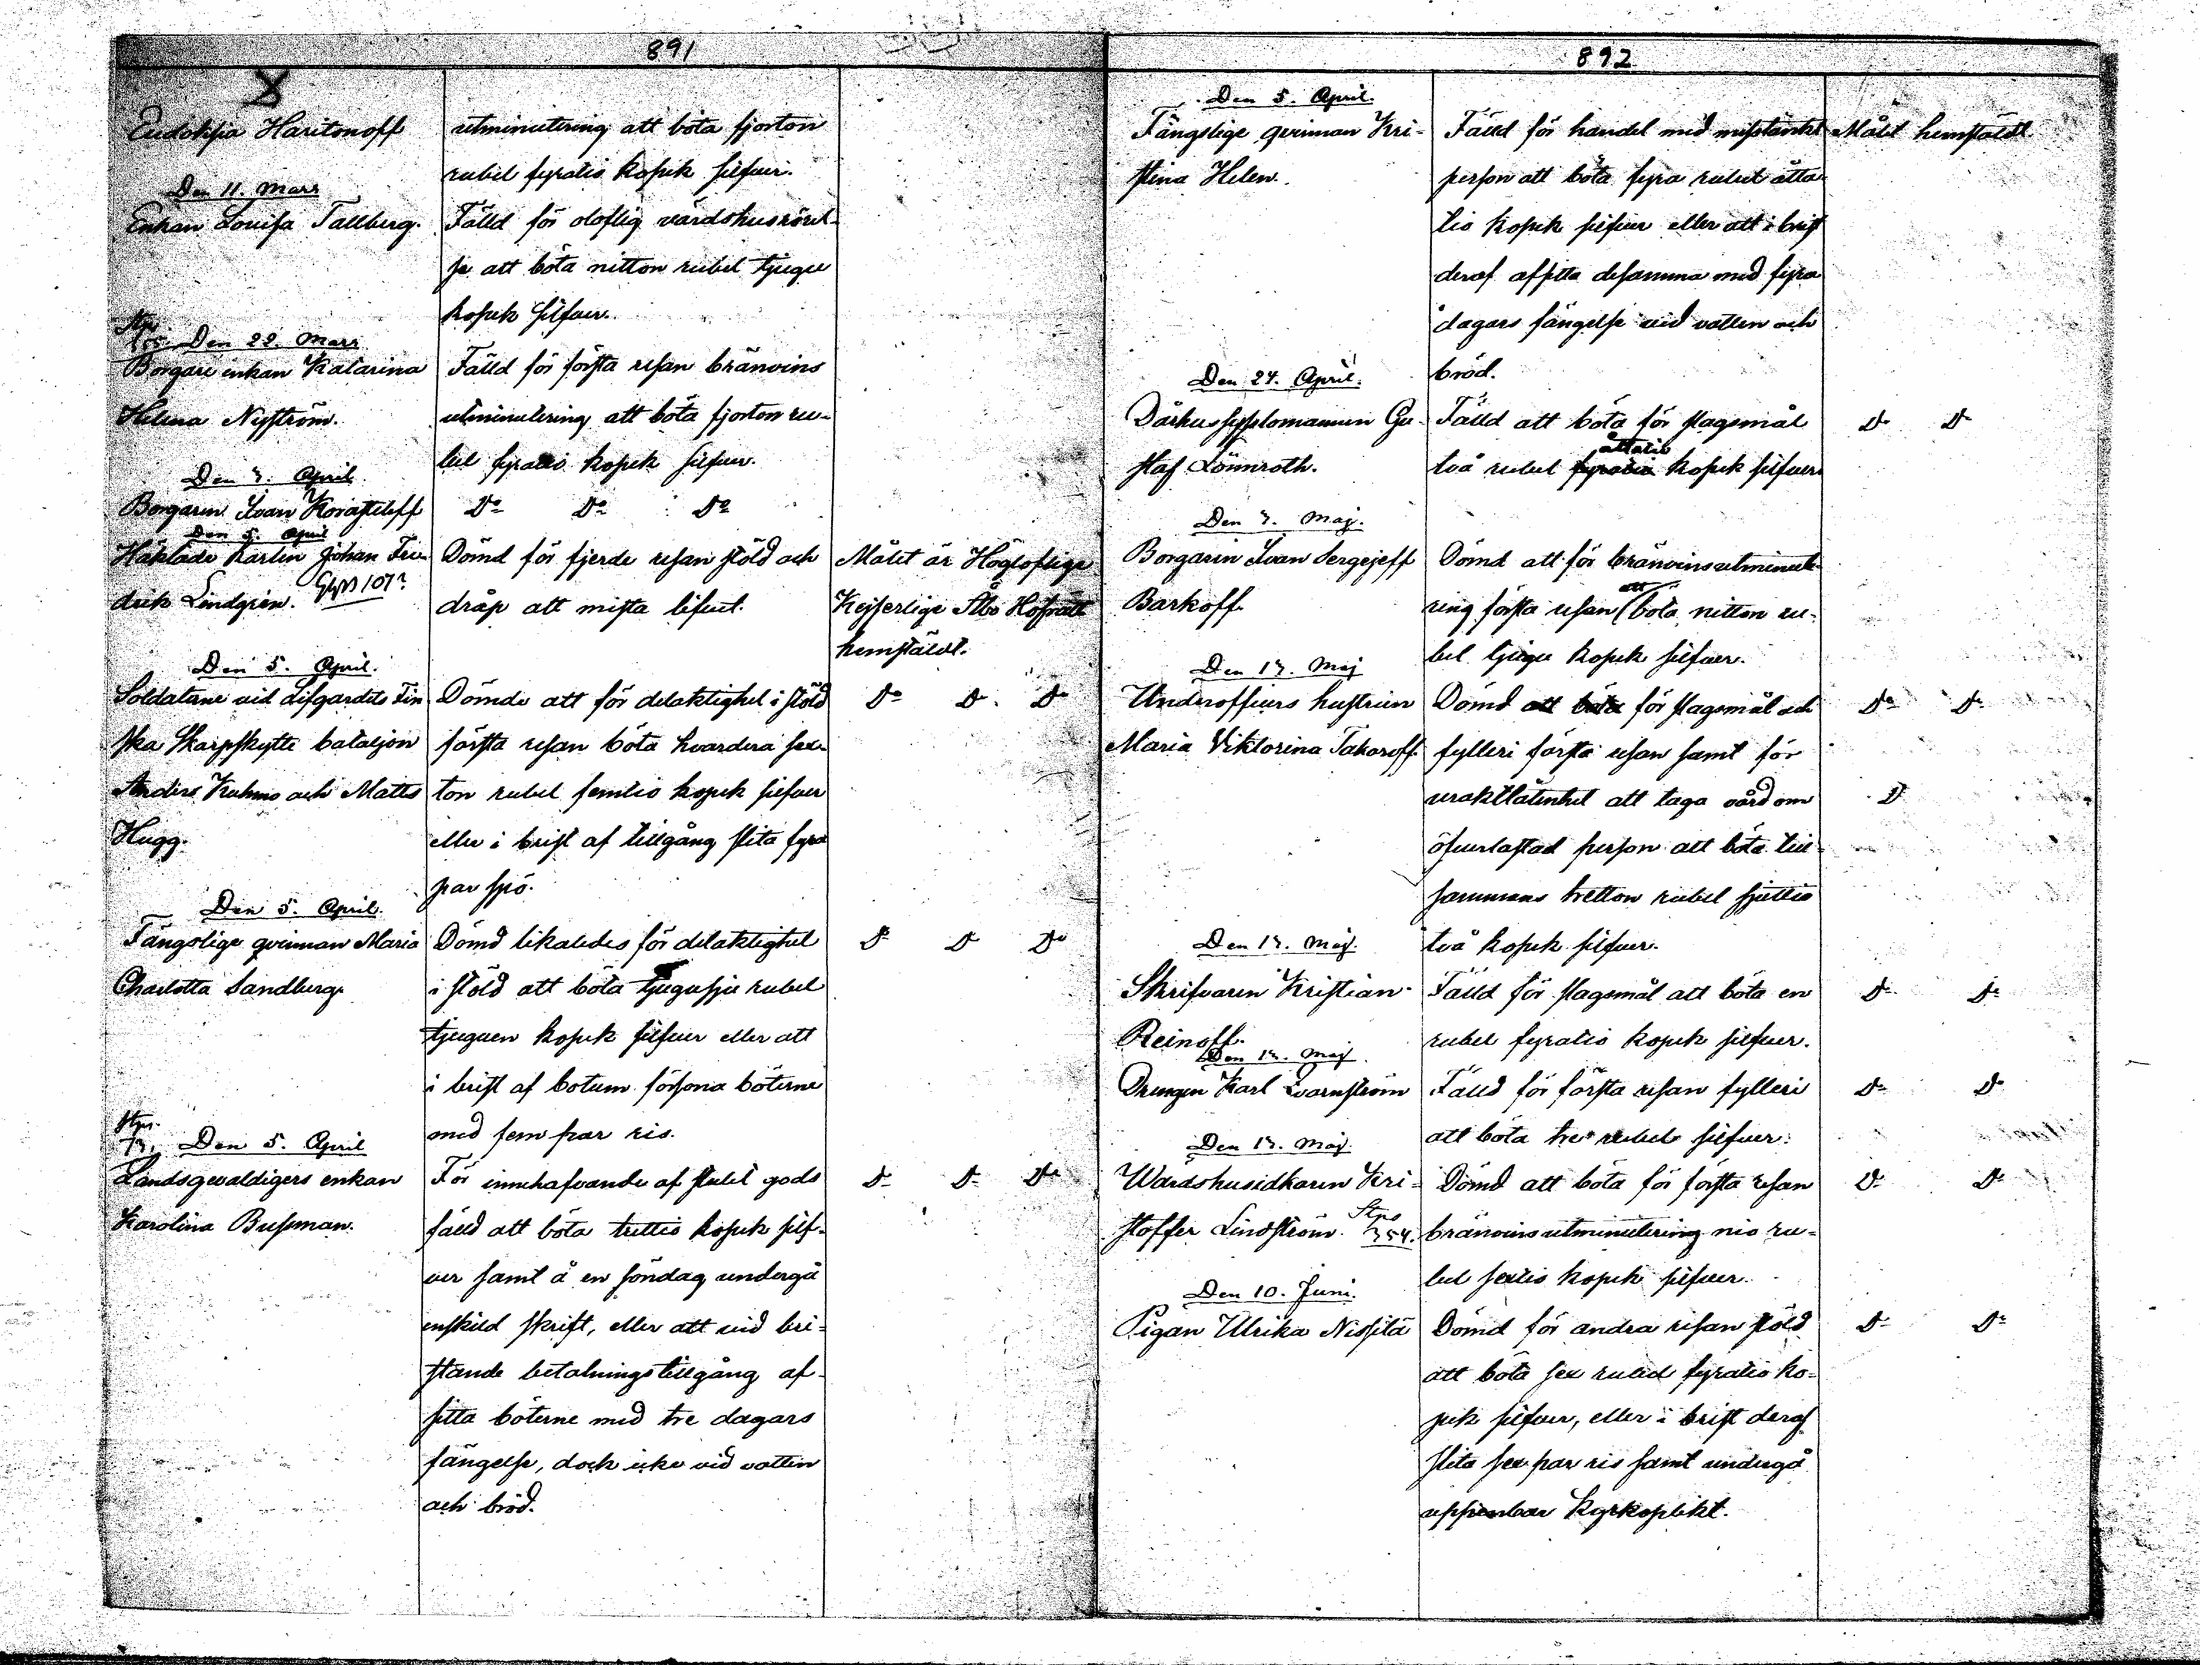 891
Eudoksia Haritonoff
utminutering att böta fjorton
rubel fyratio kopek silfver.
Den 11. Mars
Enkan Louisa Tallberg.
Fälld för oloflig värdshusrörel-
se att böta nitton rubel tjugu
kopek silfver.
Den 22. Mars
Borgare enkan Katarina
Helena Nyström.
Fälld för första resan bränvins
utminutering att böta fjorton ru-
bel fyratio kopek silfver.
Den 3. April
Borgaren Ivan
Do Do Do
Den 5. April
Häktade Karlen Johan Fre-
drik Lindgren.
Dömd för fjerde resan stöld och
dråp att mista lifvet.
Målet är Högloflige
Kejserlige Åbo Hofrätt
hemstäldt.
Den 5. April.
Soldatane vid Lifgardets Fin
ska Skarpskytte bataljon
Anders Kuhmo och Matts
Hugg.
Dömde att för delaktighet i stöld
första resan böta hvardera sex-
ton rubel femtio kopek silfver
eller i brist af tillgång slita fyra
par spö.
Do Do Do
Den 5. April.
Fängslige qvinnan Maria
Charlotta Sandberg.
Dömd likaledes för delaktighet
i stöld att böta tjugusju rubel
tjuguen kopek silfver eller att
i brist af botum försona böterne
med fem par ris.
Do Do Do
Den 5. April
Landsgevaldigers enkan
Karolina Busman.
För innehafvande af stulet gods
fälld att böta trettio kopek silf-
ver samt å en söndag undergå
enskild skrift, eller att vid bri-
stande betalningstillgång af-
sitta böterne med tre dagars
fängelse, dock icke vid vatten
och bröd.
Do Do Do
892
Den 5. April.
Fängslige qvinnan Kri-
stina Helen.
Fälld för handel med misstänkt
person att böta fyra rubel åtta
tio kopek silfver eller att i brist
deraf afsitta desamma med fyra
dagars fängelse vid vatten och
bröd.
Målet hemstäldt.
Den 24. April.
Dårhussysslomannen Gu-
staf Lönnroth.
Fälld att böta för slagsmål
åttatio
två rubel fyratio kopek silfver
Do Do
Den 3. Maj.
Borgaren Ivan Sergejeff
Barkoff.
Dömd att för bränvinsutminute-
att
ring första resan böta nitton ru-
bel tjugu kopek silfver.
Den 13. Maj
Underofficers hustrun
Maria Viktorina Takaroff.
Dömd att böta för slagsmål och
fylleri första resan samt för
uraktlåtenhet att taga vård om
öfverlastad person att böta till
sammans tretton rubel sjuttio
två kopek silfver.
Do Do
Do
Den 13. Maj.
Skrifvaren Kristian
Reinoff.
Fälld för slagsmål att böta en
rubel fyratio kopek silfver.
Do Do
Den 13. Maj.
Drengen Karl Qvarnström
Fälld för första resan fylleri
att böta tre rubel silfver.
Do Do
Den 13. Maj.
Wärdshusidkaren Kri-
stoffer Lindström.
Dömd att böta för första resan
bränvinsutminutering nio ru-
bel sextio kopek silfver.
Do Do
Den 10. Juni.
Pigan Ulrika Nissilä
Dömd för andra resan stöld
att böta sex rubel fyratio ko-
pek silfver, eller i brist deraf
slita sex par ris samt undergå
uppenbar kyrkoplikt.
Do Do